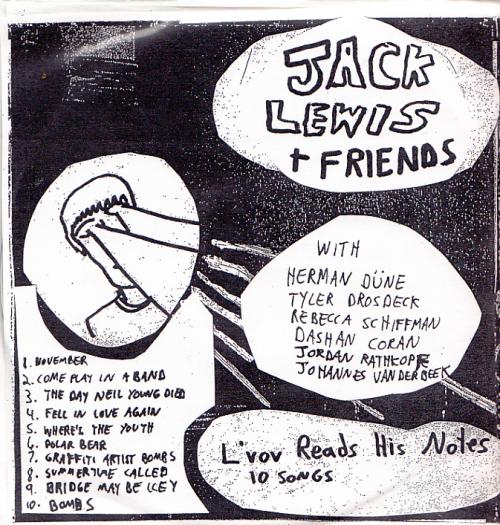 JACK
LEWIS
+ FRIENDS
WITH
HERMAN DÜNE
TYLER DROSDECK
REBECCA SCHIFFMAN
DASHAN CORAN
JORDAN RATHKOPF
JOHANNES VANDERBEEK
1. NOVEMBER
2. COME PLAY IN A BAND
3. THE DAY NEIL YOUNG DIED
4. FELL IN LOVE AGAIN
5. WHERE'S THE YOUTH
6. POLAR BEAR
7. GRAFFITI ARTIST BOMBS
8. SUMMERTIME CALLED
9. BRIDGE MAY BE ICEY
10. BOMBS
L'vov Reads His Notes
10 SONGS